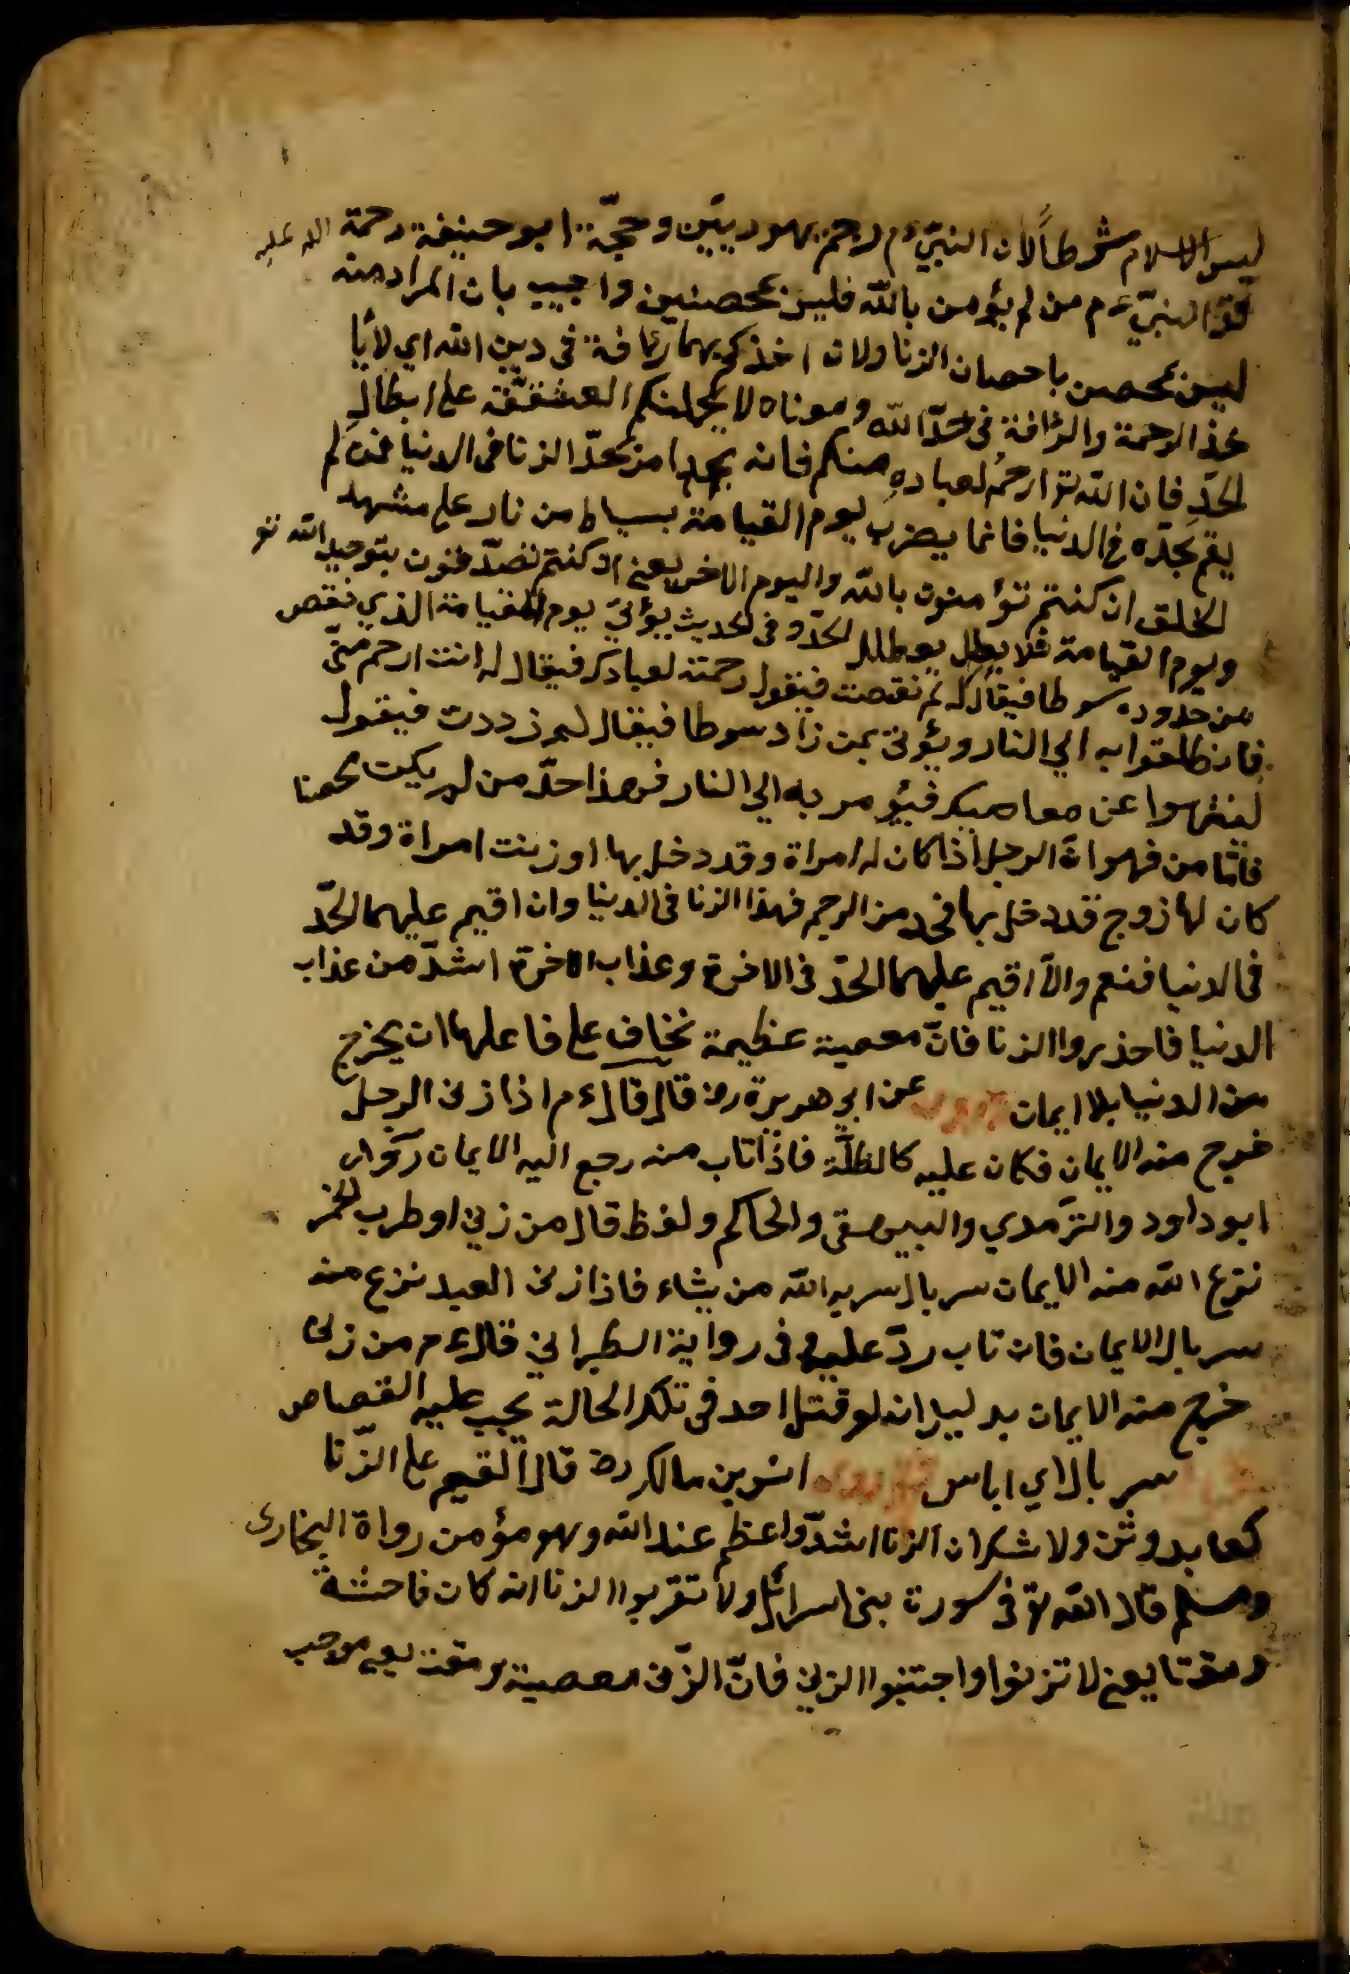 ليس الاسلام شرطاً لان النبىّ ءم رجم يهوديّين وحجّة ابو حنيفة رحمة الله عليه
قول النبىّ ءم من لم يؤمن بالله فليس بمحصنين واجيب بان المراد منه
ليس بمحصن باحصان الزنا ولا تأخذكم بهما رئافة فى دين الله اي لا يأ
خذ الرحمة والرئافة فى حدّ الله ومعناه لا يحملنكم الشفقة على ابطال
الحدّ فان الله تع ارحم لعباده منكم فانه يحد امر بحدّ الزنا فى الدنيا فمن لم
يقم بحدّه فى الدنيا فانما يضرب يوم القيامة بسياط من نار على مشهد
الخلق ان كنتم تؤمنون بالله واليوم الاخر يعنى ان كنتم تصدّقون بتوحيد الله تع
ويوم القيامة فلا يعطل الحدّ وفى الحديث يؤتى يوم القيامة الذي نقص
من حدوده سوطا فيقال له لم نقصت فيقول رحمة لعبادك فيقال له انت ارحم منّى
فانطلقوا به الي النار ويؤتى بمن زاد سوطا فيقال لم زددت فيقول
لينتهوا عن معاصيك فيؤمر به الي النار فهذا حدّ من لم يكن محصنا
فامّا من فهو انّ الرجل اذا كان له امراة وقد دخل بها او زنت امراة وقد
كان لها زوج قد دخل بها فحد من الرجم فهذا الزنا فى الدنيا وان اقيم عليهما الحدّ
فى الدنيا فنعم والاّ اقيم عليهما الحدّ فى الاخرة وعذاب الاخرة اشدّ من عذاب
الدنيا فاحذروا الزنا فانّ معصية عظيمة نخاف على فاعلها ان يخرج
من الدنيا بلا ايمان عن ابي هريرة رض قال قال ءم اذا زنى الرجل
خرج منه الايمان فكان عليه كالظلّة فاذا تاب منه رجع اليه الايمان رواه
ابو داود والترمدي والبيهقى والحاكم ولفظ قال من زنى او طرب الخمر
نزع الله منه الايمان سربال سربه الله من يشاء فاذا زنى العبد نزع منه
سربال الايمان فان تاب ردّ عليه وفى رواية الطبراني قال ءم من زنى
خرج منه الايمان بدليل انه لو قتل احد فى تلك الحالة يجب عليه القصاص
سربال اي لباس انس بن مالك رض قال القيم على الزّنا
كعابد وثن ولا شك ان الزنا اشدّ واعظم عند الله وهو مؤمن رواة البخارى
ومسلم قال الله تع فى سورة بنى اسرائل ولا تقربوا الزنا انه كان فاحشة
ومقتا يعنى لا تزنوا واجتنبوا الزنى فانّ الزّنى معصية ومقت يعنى موجب